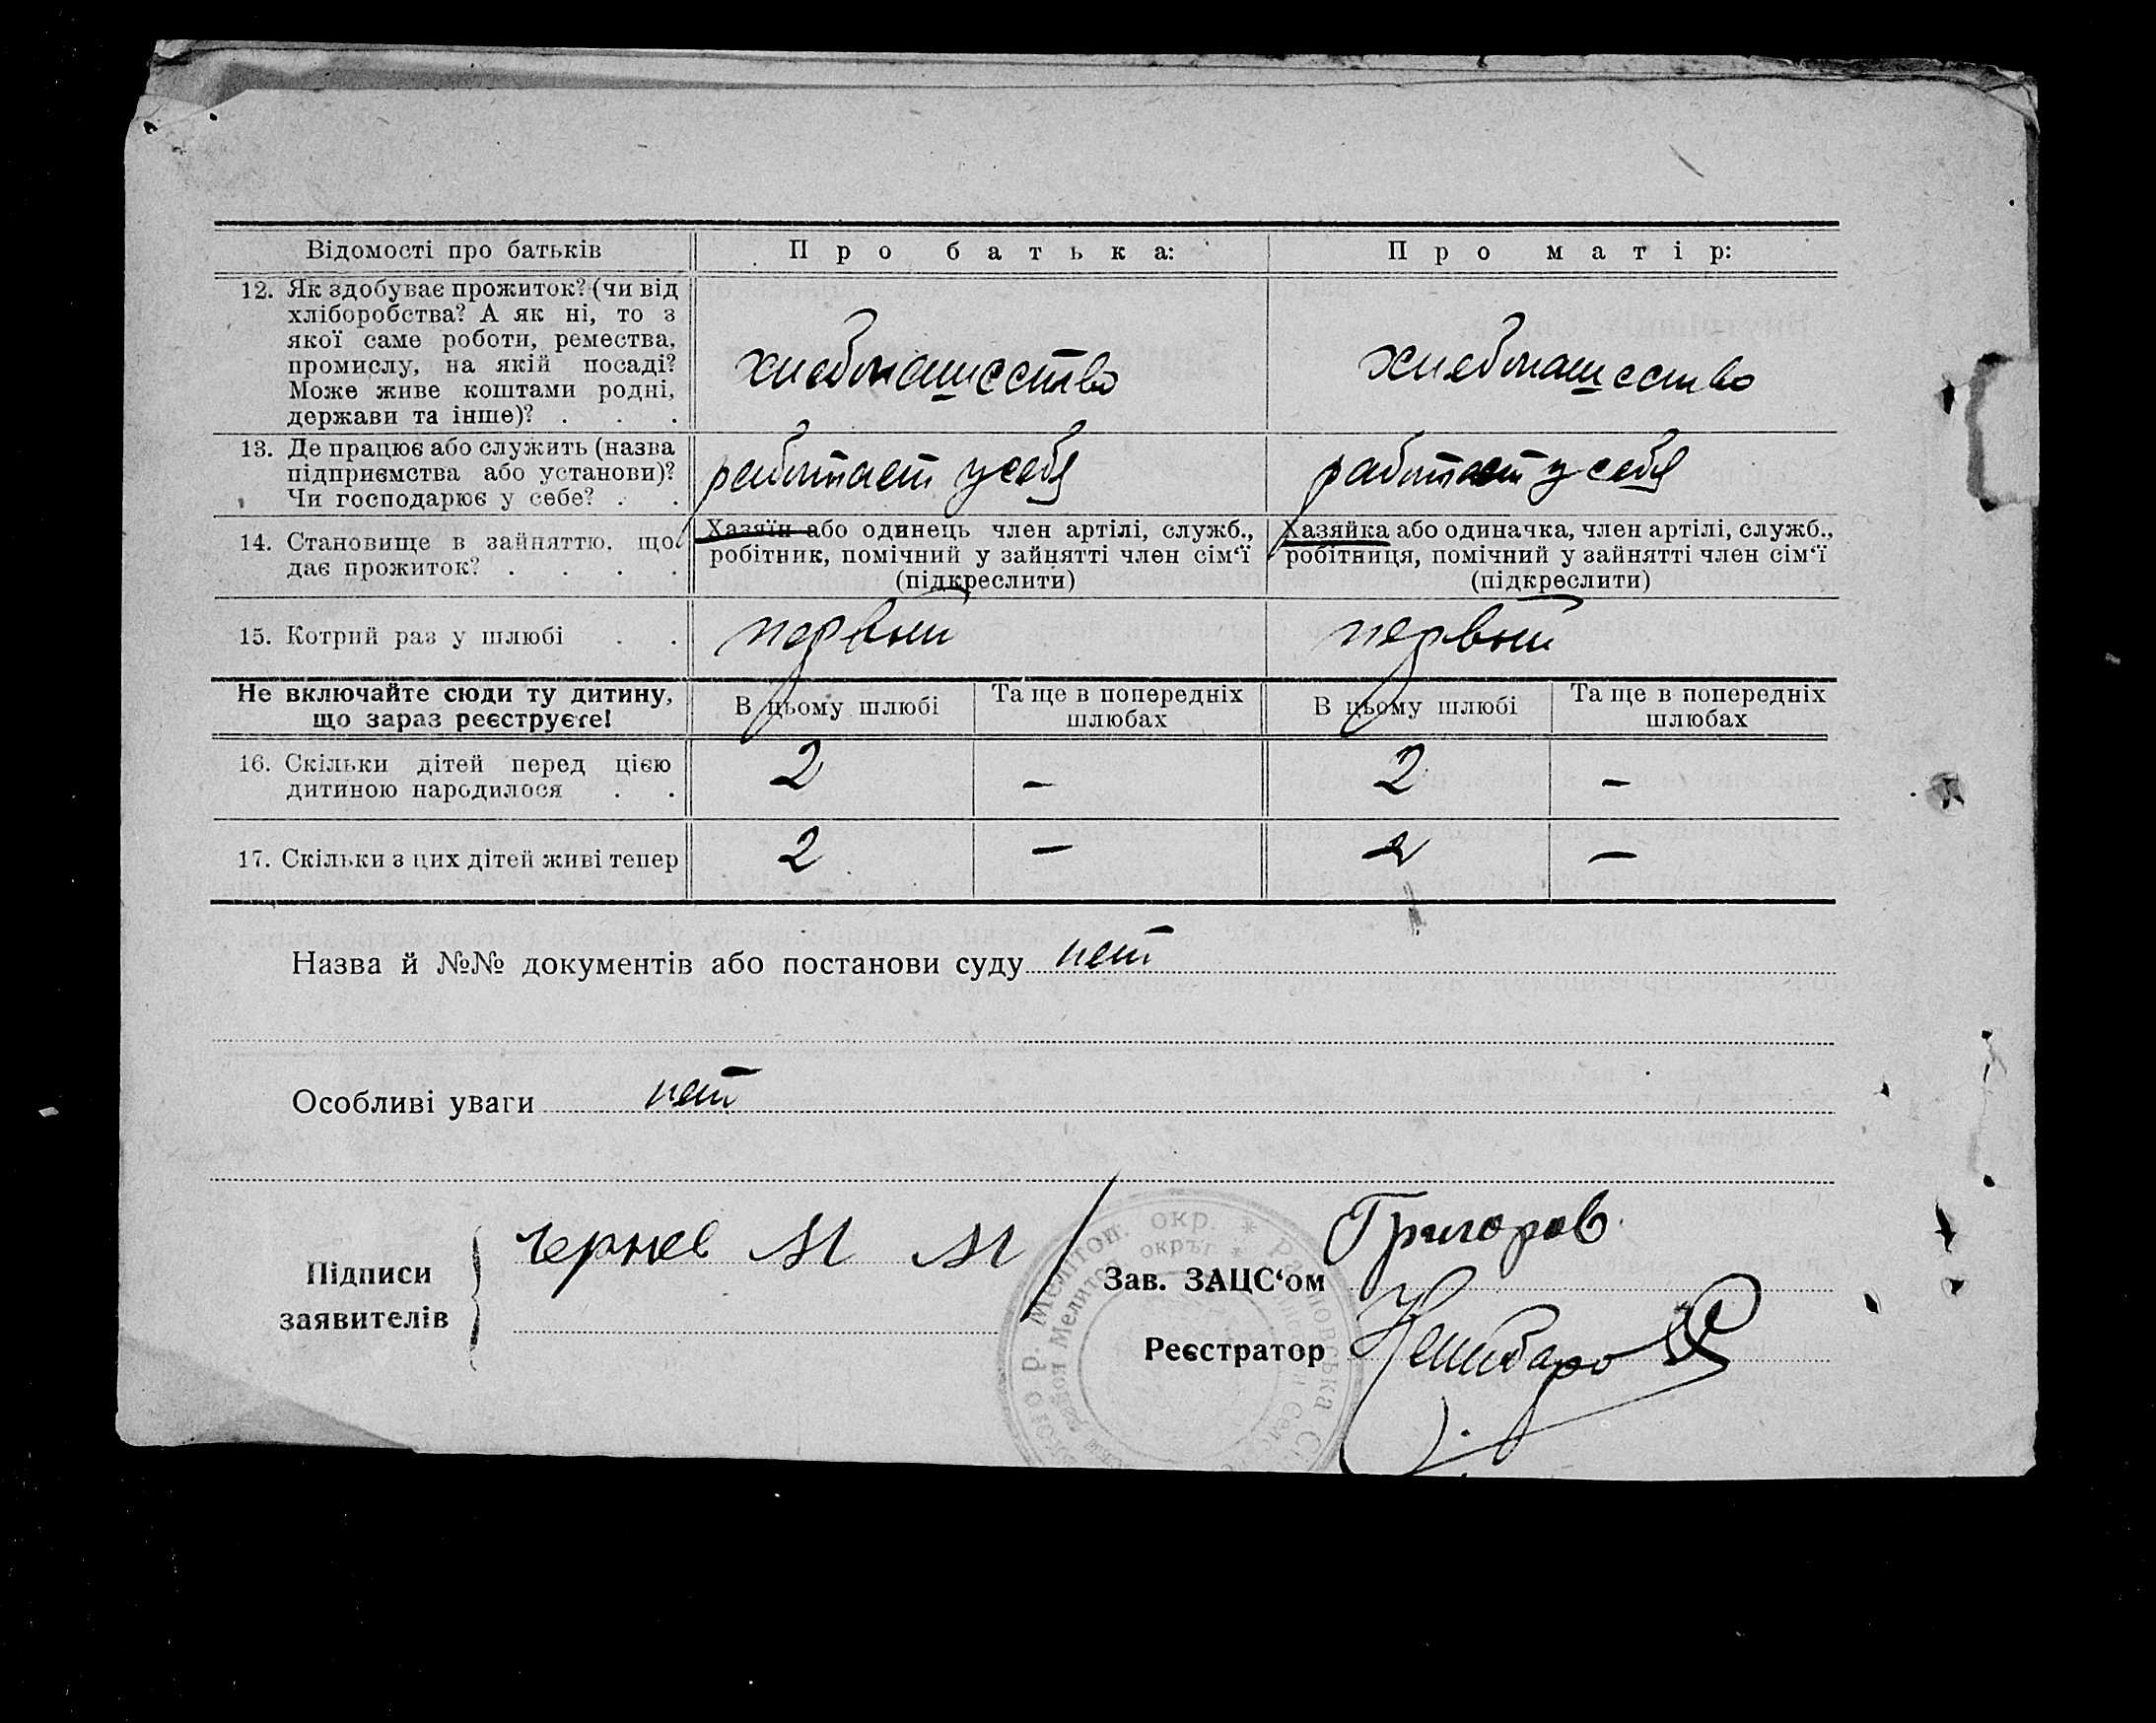 Відомості про батьків
Про батька:
Про матір:
12. Як здобуває прожиток? (чи від
хліборобства? А як ні, то з
якої саме роботи, ремества,
промислу, на якій посаді?
Може живе коштами родні,
держави та інше)? . . .
хлебопашество
хлебопашество
13. Де працює або служить (назва
підприємства або установи)?
Чи господарює у себе? . .
работает у себя
работает у себя
14. Становище в зайняттю, що
дає прожиток? . . . .
Хазяїн або одинець член артілі, служб.,
робітник, помічний у зайнятті член сім‘ї
(підкреслити)
Хазяйка або одиначка, член артілі, служб.,
робітниця, помічний у зайнятті член сім‘ї
(підкреслити)
15. Котрий раз у шлюбі . .
первый
первый
Не включайте сюди ту дитину,
що зараз реєструєте!
В цьому шлюбі
Та ще в попередніх
шлюбах
В цьому шлюбі
Та ще в попередніх
шлюбах
16. Скільки дітей перед цією
дитиною народилося . .
2
–
2
–
17. Скільки з цих дітей живі тепер
2
–
2
–
Назва й №№ документів або постанови суду нет
Особливі уваги нет
Підписи
заявителів
Чернев М М
Григоров
Зав. ЗАЦС‘ом
Реєстратор
р. Мелітоп. окр. *
Мелитоп. округ *